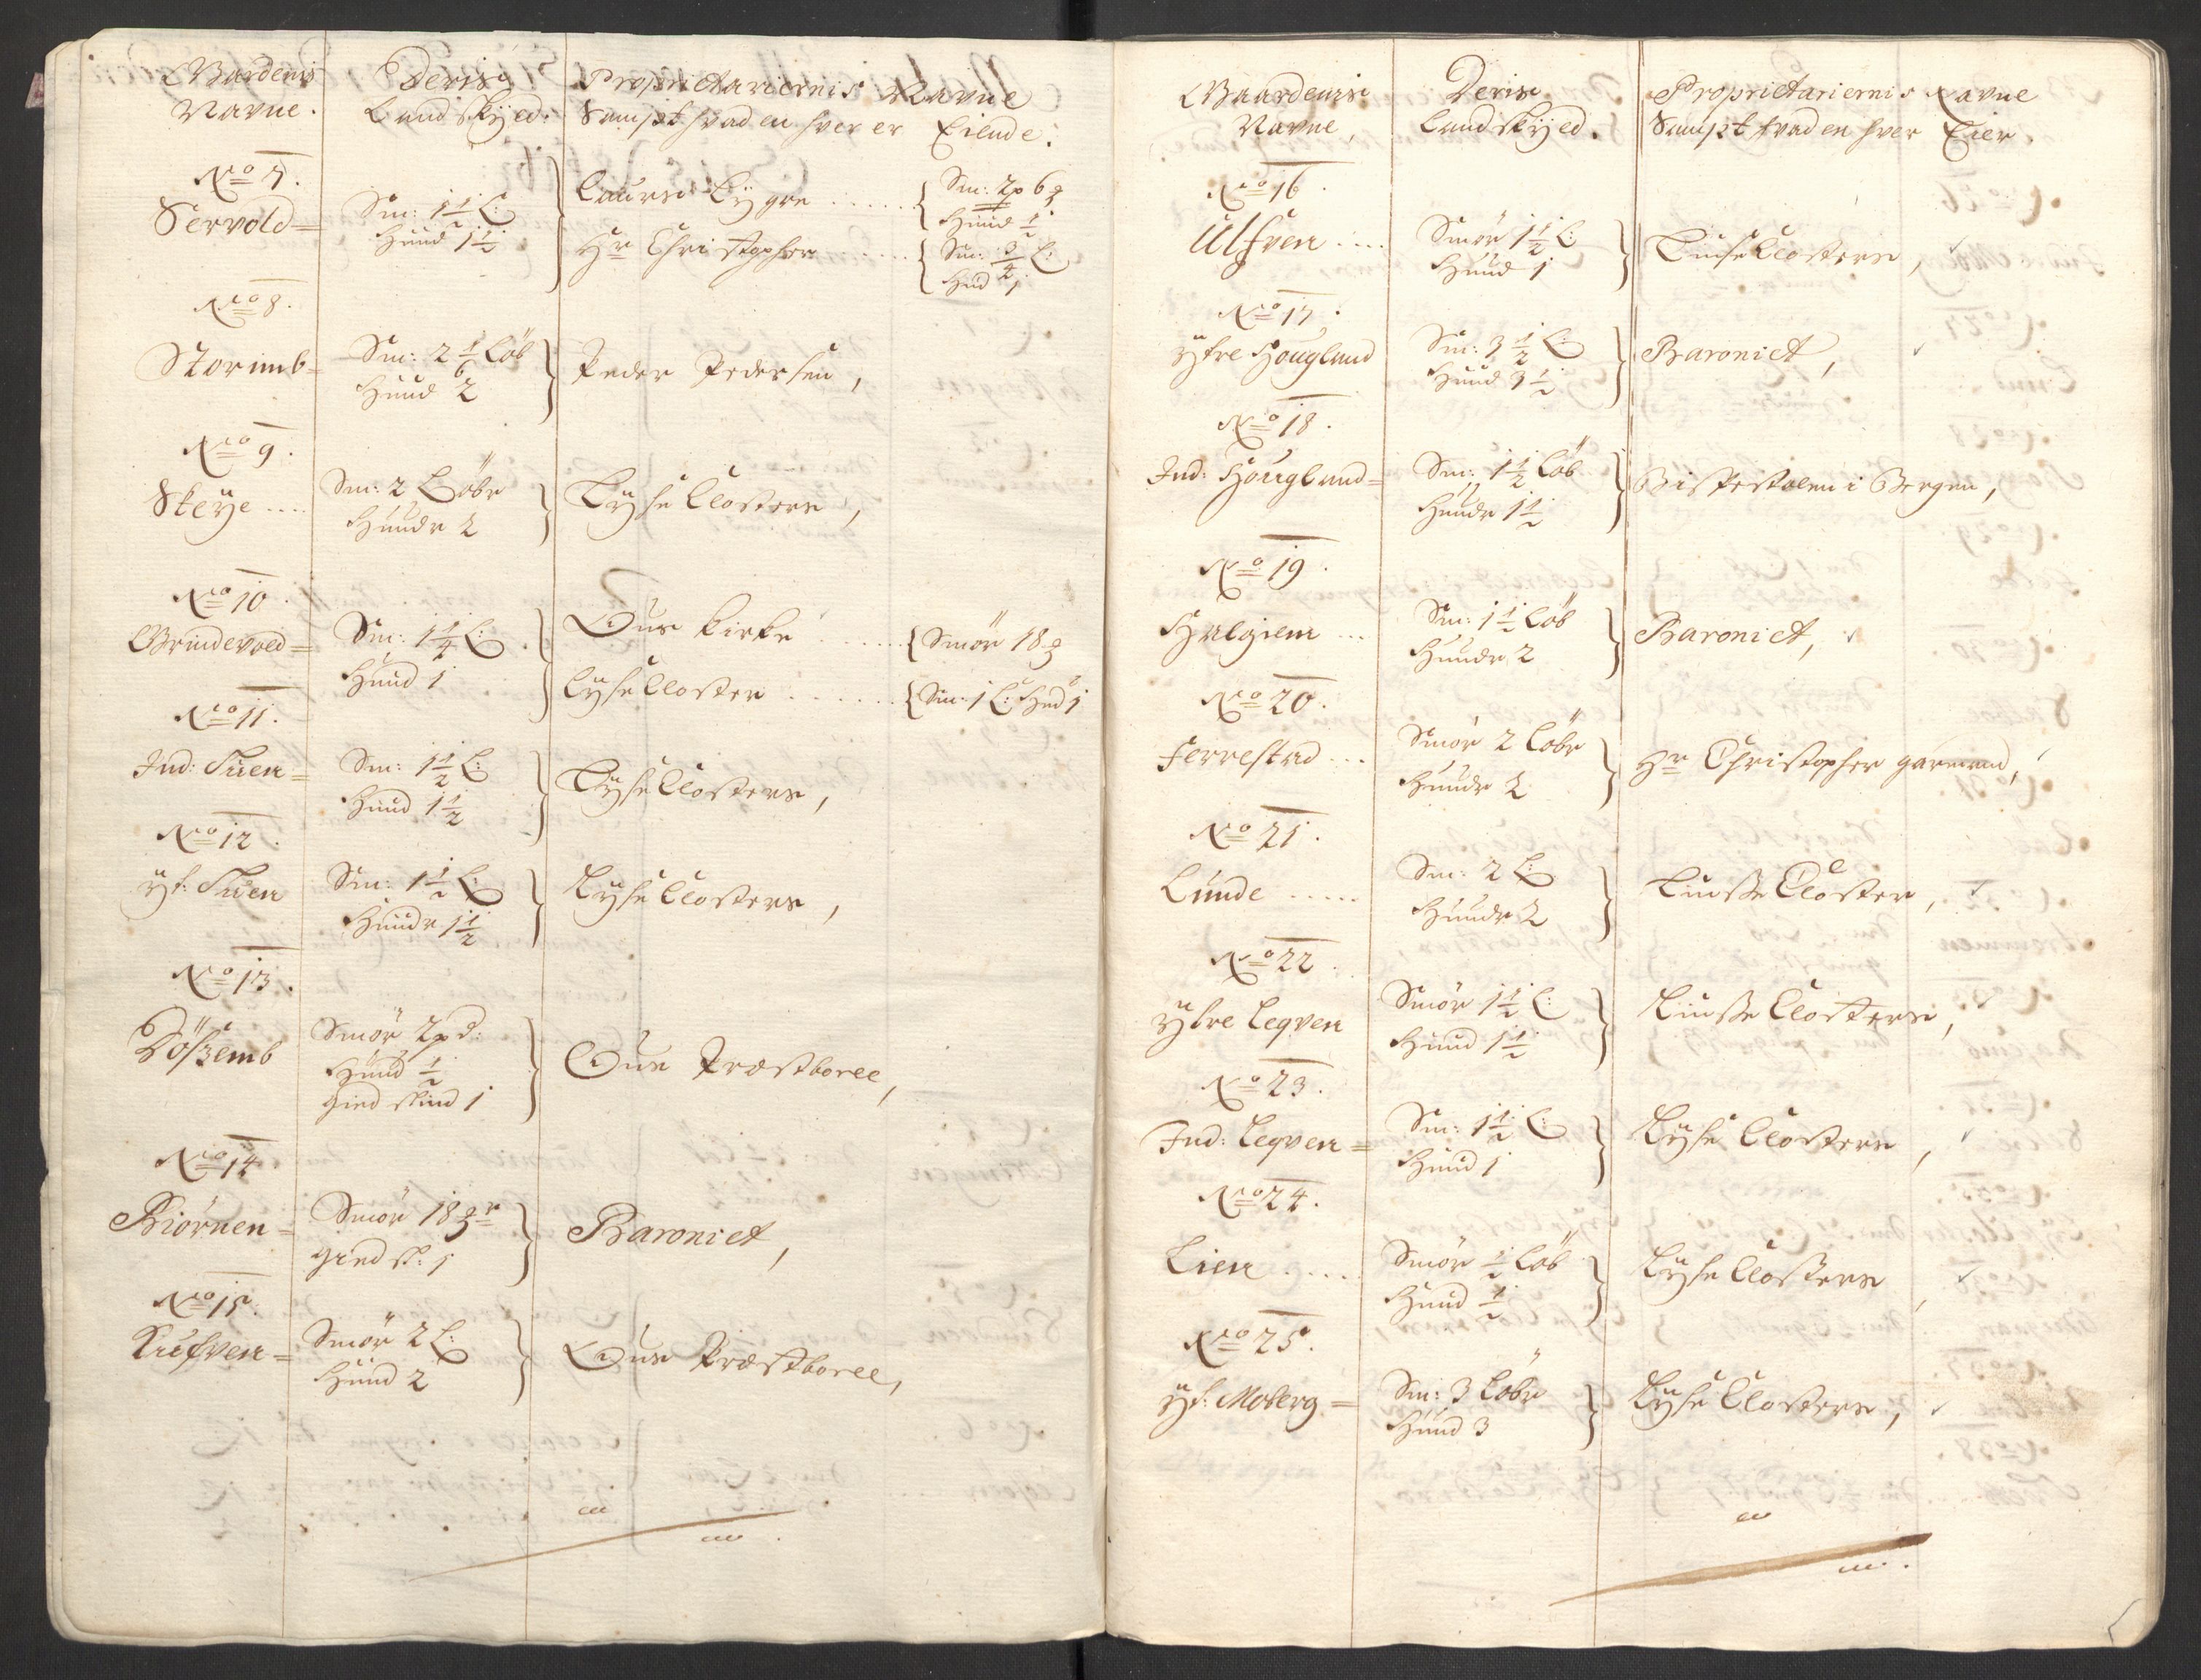 Gaardenis
Navne.
Deris
Landskyed.
Proprietariernis Navne
Sampt hvad en hver er Eiende.
No 7.
Servold
Sm: 1 1/2 L:
Huud 1 1/2
Laurs Lygre ...... Sm: 2 p 6
Huud 1/2
Hr Christopher ..... Sm: 3/4 L:
Hud 1
No 8.
Storimb
Sm: 2 1/6 Löb
Huud 2
Peder Pedersen,
No 9.
Skeye ....
Sm: 2 Löbe
Huude 2
Lyse Closters,
No 10.
Grindevold
Sm: 1 1/4 L:
Huud 1
Ous Kirke ....... Smör 18
Lyse Closter ....... Sm: 1 L: Hud 1
No 11.
Ind: Tuen
Sm: 1 1/2 L:
Huud 1 1/2
Lyse Closters,
No 12.
Yt: Tuen
Sm: 1 1/2 L:
Huude 1 1/2
Lyse Closters,
No 13.
Döszemb
Smör 2 pd:
Huud 1/2
Giedskind 1
Ous Præstboell,
No 14.
Biørnen
Smör 18
Giedsk: 1
Baroniet,
No 15.
Kufven
Smör 2 L:
Huud 2
Ous Præstboell,
Gaardenis
Navne,
Deris
Landskyed.
Proprietariernis Navne
Sampt hvad en hver Eier.
No 16.
Ulfven ....
Smör 1 1/2 L:
Huud 1
Liuse Closters,
No 17.
Ytre Hougland
Sm: 3 1/2 L:
Huud 3 1/2
Baroniet,
No 18.
Ind: Hougland
Sm: 1 1/2 Löb
Huude 1 1/2
Bispestolen i Bergen,
No 19.
Halgiem ...
Sm: 1 1/2 Löb
Huude 2
Baroniet,
No 20.
Ferrestad ...
Smör 2 Löbe
Huude 2
Hr Christopher Garmand,
No 21.
Lunde .....
Sm: 2 L:
Huude 2
Liusse Closter,
No 22.
Ytre Leqven
Smör 1 1/2 L:
Huud 1 1/2
Liusse Closters,
No 23.
Ind: Leqven
Sm: 1 1/2 L:
Huud 1
Lyse Closters,
No 24.
Lien .....
Smör 1/2 Löb
Huud 1/2
Lyse Closters,
No 25.
Yt: Moberg
Sm: 3 Löbe
Huud 3
Lyse Closters,